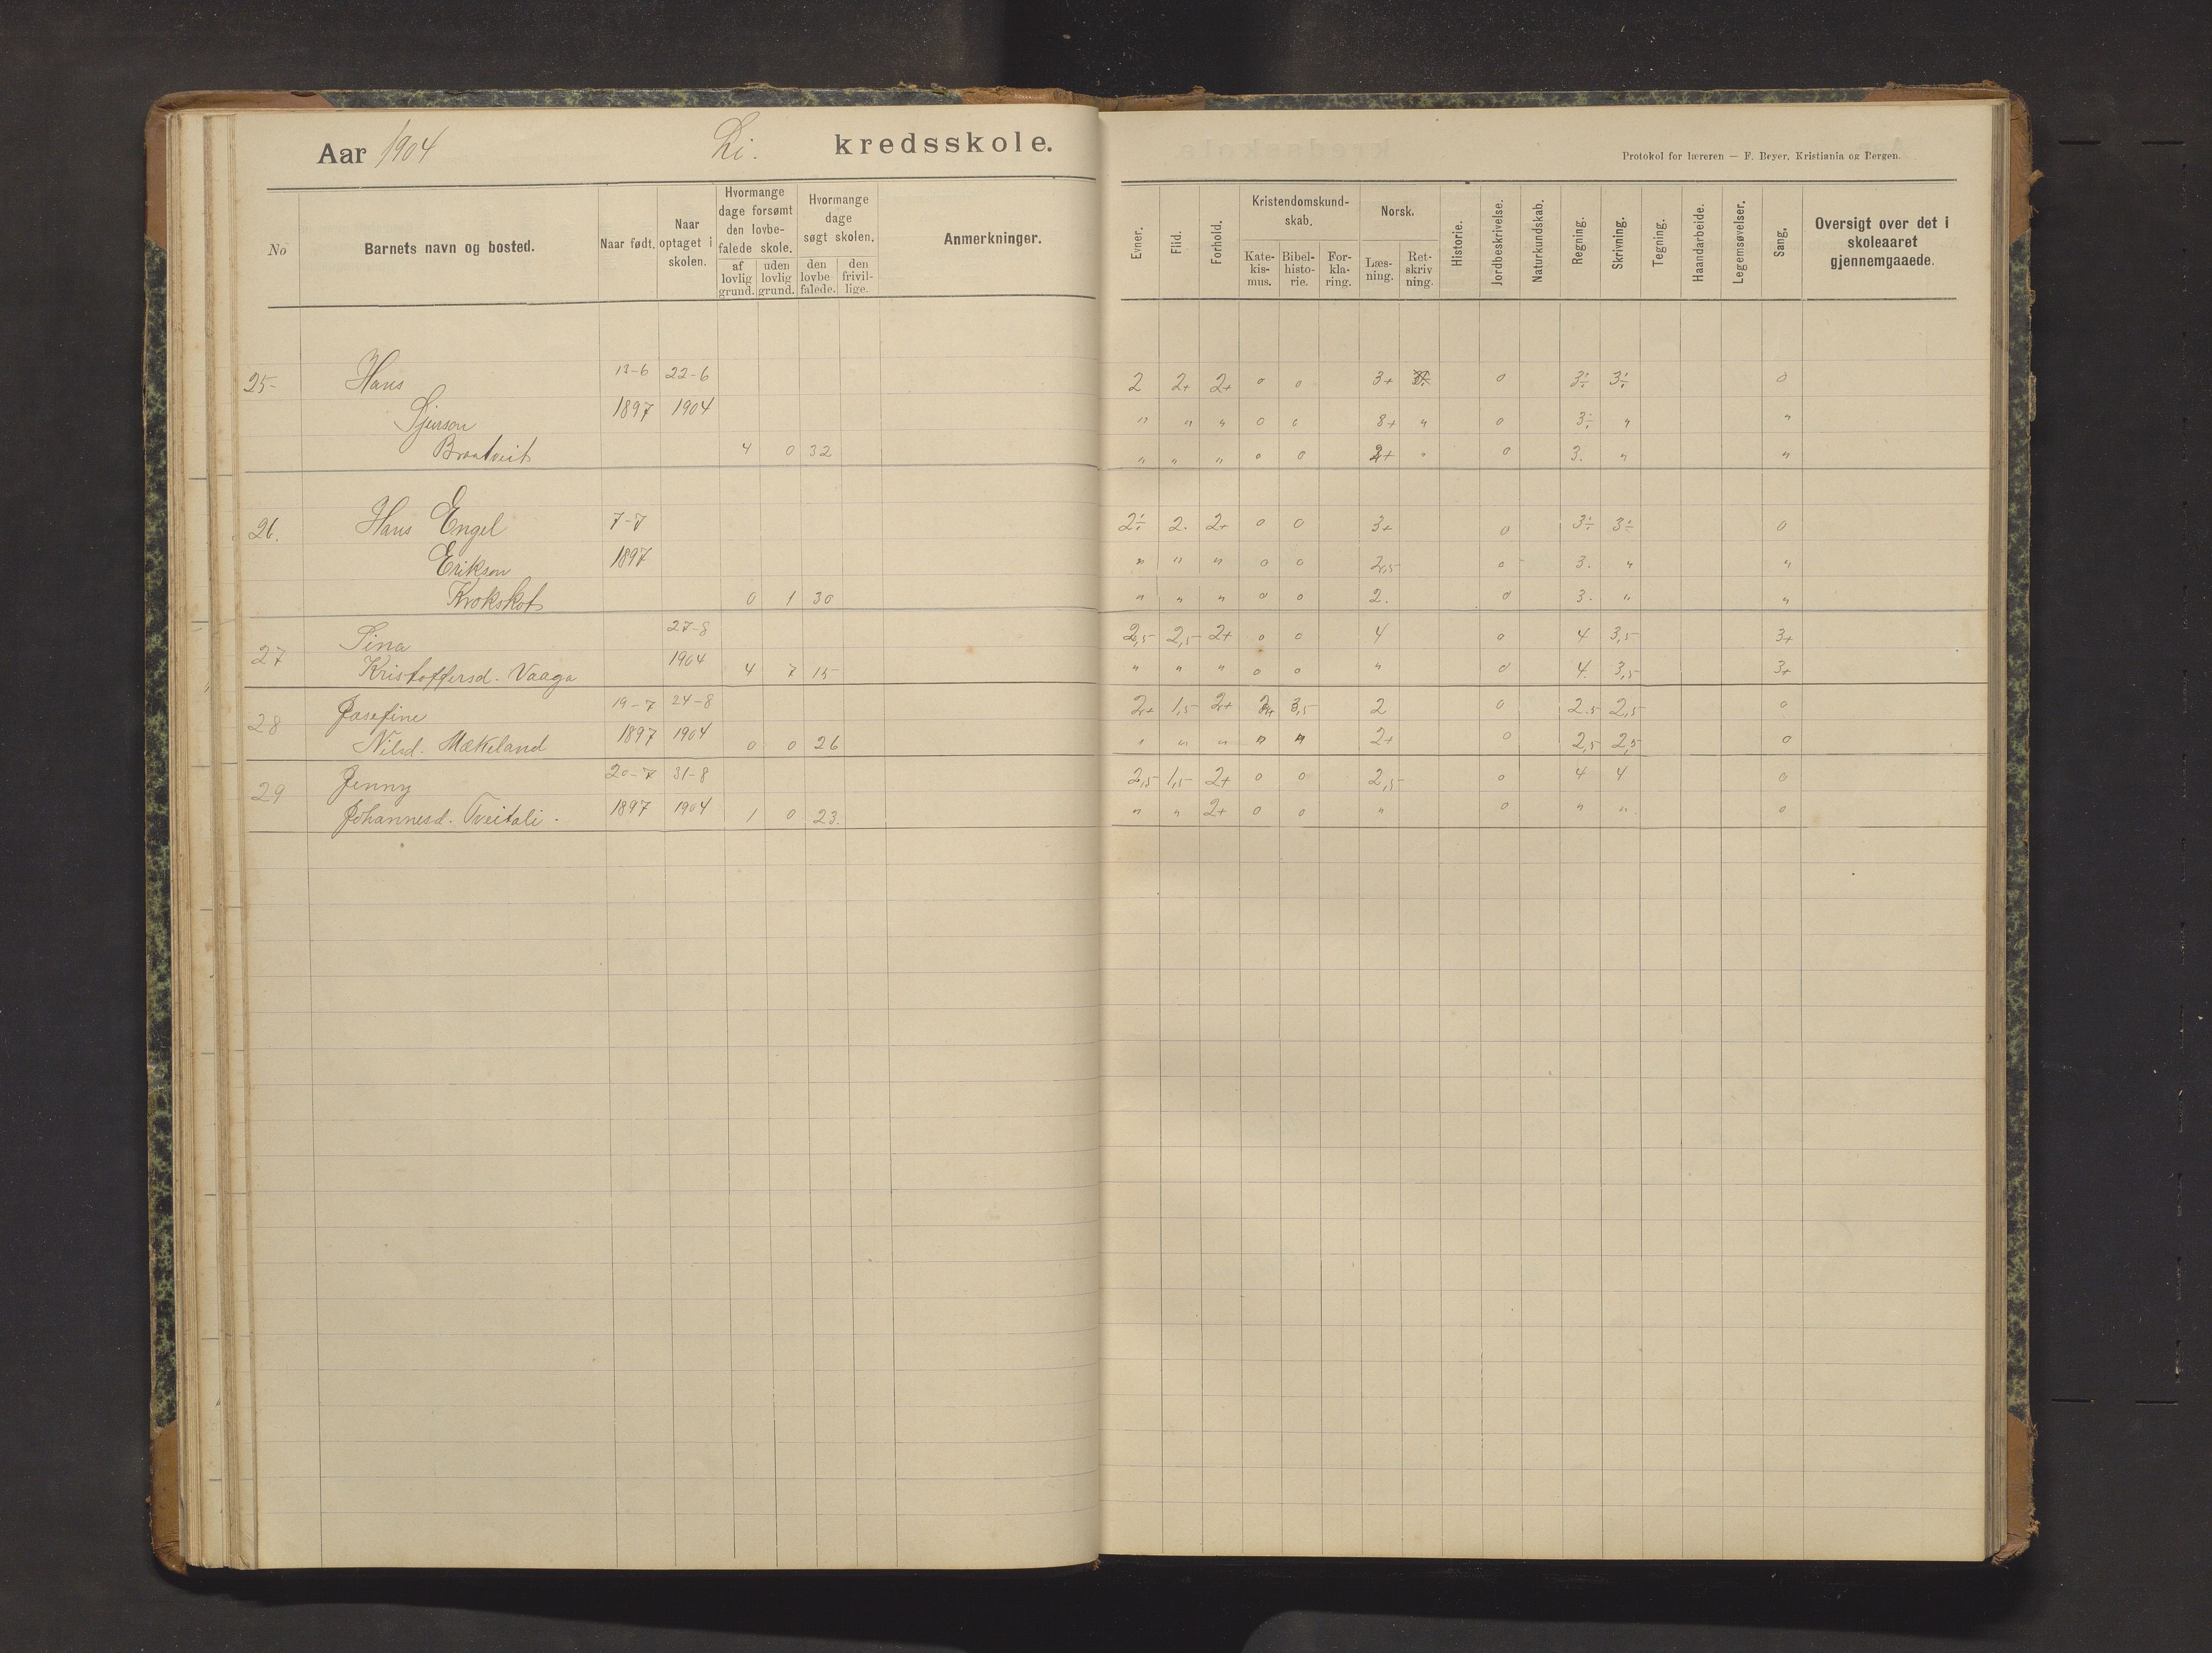 Aar 1904 Li. kredsskole.
Protokol for læreren — F. Beyer, Kristiania og Bergen.
No Barnets navn og bosted. Naar født. Naar optaget i skolen. Hvormange dage forsømt den lovbefalede skole. af lovlig grund. uden lovlig grund. Hvormange dage søgt skolen. den lovbefalede. den frivillige. Anmerkninger.
Evner. Flid. Forhold. Kristendomskundskab. Katekismus. Bibelhistorie. Forklaring. Norsk. Læsning. Retskrivning. Historie. Jordbeskrivelse. Naturkundskab. Regning. Skrivning. Tegning. Haandarbeide. Legemsøvelser. Sang. Oversigt over det i skoleaaret gjennemgaaede.
25- Hans 13-6 22-6 2 2+ 2+ 0 0 3+ 0 3÷ 3÷ 0
Sjurson 1897 1904 " " " 0 0 3+ " 0 3÷ " "
Brаatveit 4 0 32 " " " 0 0 2+ " 0 3. " "
26. Hans Engel 7-7 2÷ 2. 2+ 0 0 3+ 0 3÷ 3÷ 0
Erikson 1897 " " " 0 0 2,5 0 3. " "
Krokskot 0 1 30 " " " 0 0 2. 0 3. " "
27 Sina 27-8 2,5 2,5 2+ 0 0 4 0 4 3,5 3+
Kristoffersd. Vaaga 1904 4 7 15 " " " 0 0 " 0 4. 3,5 3+
28 Josefine 19-7 24-8 2+ 1,5 2+ 2+ 3,5 2 0 2.5 2,5 0
Nilsd. Mækeland 1897 1904 0 0 26 " " " " " 2+ 0 2,5 2,5 0
29 Jenny 20-7 31-8 2,5 1,5 2+ 0 0 2,5 0 4 4 0
Johannesd. Tveitali. 1897 1904 1 0 23. " " 2+ 0 0 " 0 " " 0